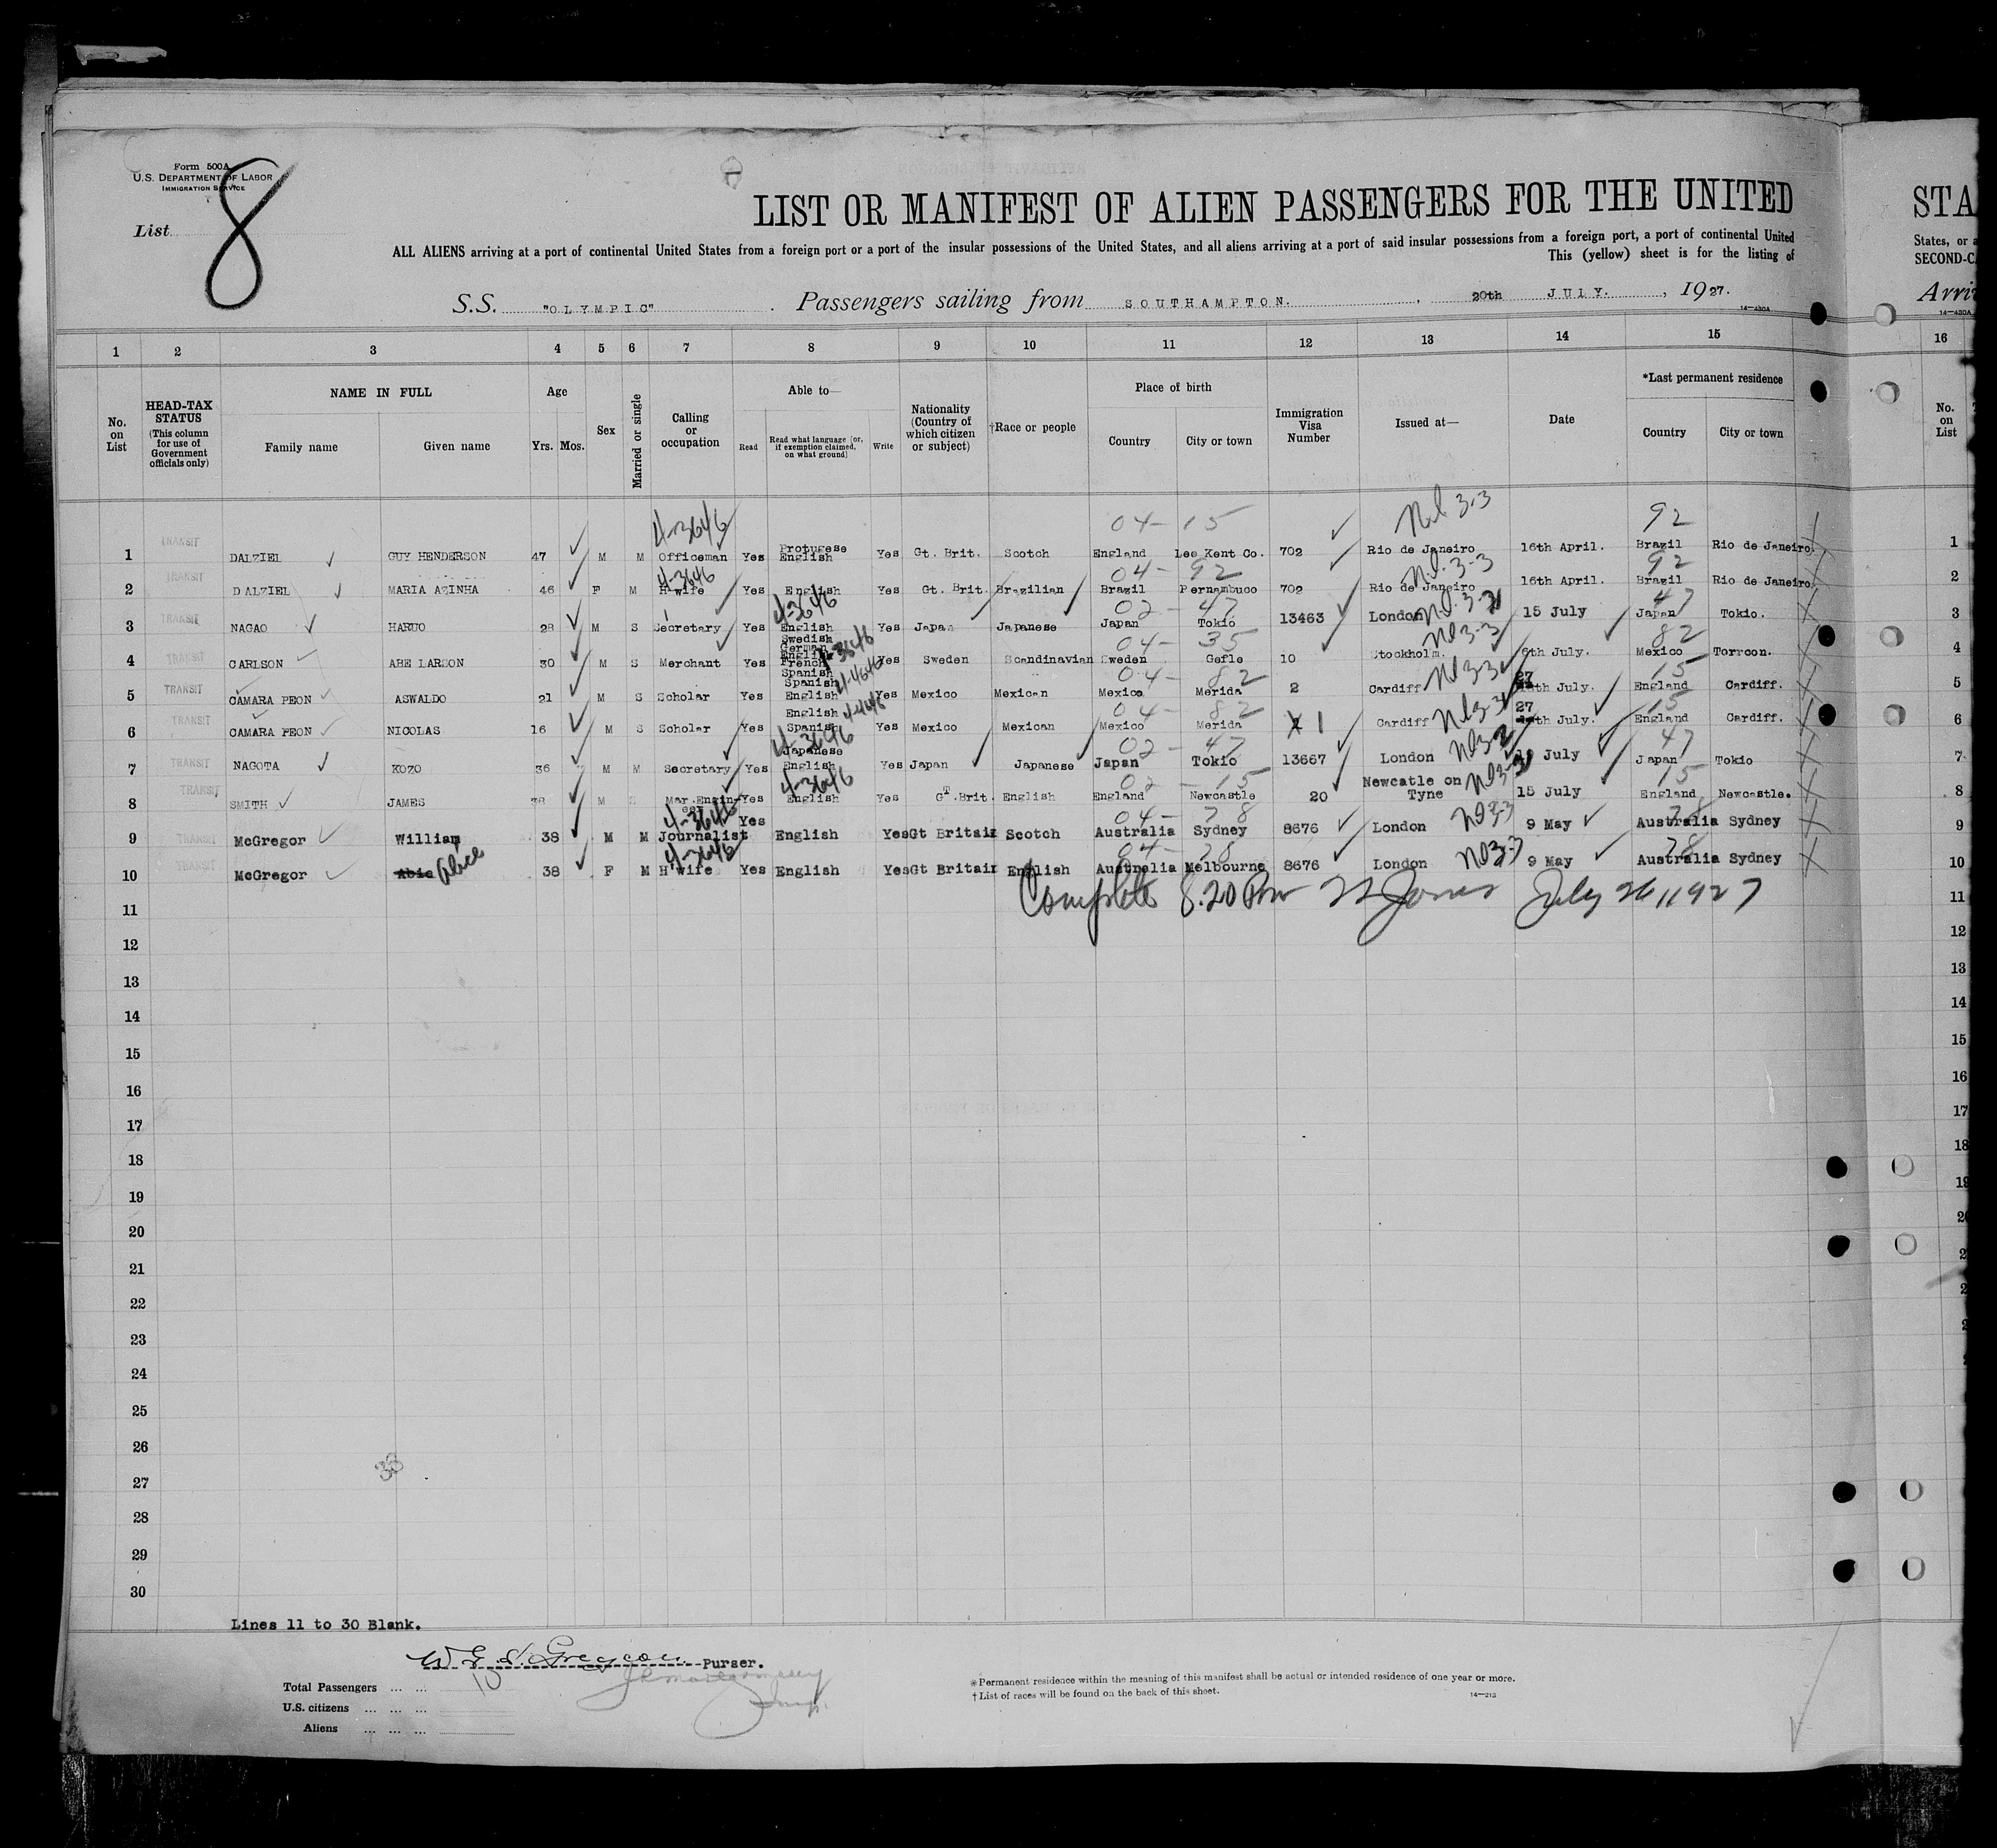 Form 500A
U.S. DEPARTMENT OF LABOR
IMMIGRATION SERVICE
List 8
LIST OR MANIFEST OF ALIEN PASSENGERS FOR THE UNITED
STA
ALL ALIENS arriving at a port of continental United States from a foreign port or a port of the insular possessions of the United States, and all aliens arriving at a port of said insular possessions from a foreign port, a port of continental United
States, or a
This (yellow) sheet is for the listing of
SECOND-CA
S.S. "OLYMPIC" . Passengers sailing from SOUTHAMPTON. , 20th JULY. , 1927.
Arri
14—430A
14—430A
1 2 3 4 5 6 7 8 9 10 11 12 13 14 15 16
No. on List
HEAD-TAX STATUS (This column for use of Government officials only)
NAME IN FULL
Family name Given name
Age
Yrs. Mos.
Sex
Married or single
Calling or occupation
Able to—
Read Read what language [or, if exemption claimed, on what ground] Write
Nationality (Country of which citizen or subject)
†Race or people
Place of birth
Country City or town
Immigration Visa Number
Issued at—
Date
*Last permanent residence
Country City or town
No. on List
4-3646 04-15 Nil 3-3 92
1 TRANSIT DALZIEL GUY HENDERSON 47 M M Officeman Yes Protugese English Yes Gt. Brit. Scotch England Lee Kent Co. 702 Rio de Janeiro 16th April. Brazil Rio de Janeiro. 1
4-3646 04-92 Nil 3-3 92
2 TRANSIT DALZIEL MARIA AZINHA 46 F M H'wife Yes English Yes Gt. Brit. Brazilian Brazil Pernambuco 702 Rio de Janeiro 16th April. Brazil Rio de Janeiro. 2
4-3646 02-47 47
3 TRANSIT NAGAO HARUO 28 M S Secretary Yes English Yes Japan Japanese Japan Tokio 13463 London 15 July Japan Tokio. 3
04-35 82
4 TRANSIT CARLSON ABE LARSON 30 M S Merchant Yes Swedish German English French Spanish Yes Sweden Scandinavian Sweden Gefle 10 Stockholm. 6th July. Mexico Torreon. 4
4-4646 04-82 15
5 TRANSIT CAMARA PEON ASWALDO 21 M S Scholar Yes Spanish English Yes Mexico Mexican Mexico Merida 2 Cardiff 27 July. England Cardiff. 5
4-4646 04-82 15
6 TRANSIT CAMARA PEON NICOLAS 16 M S Scholar Yes English Spanish Yes Mexico Mexican Mexico Merida 1 Cardiff 27 July. England Cardiff. 6
4-3646 02-47 47
7 TRANSIT NAGOTA KOZO 36 M M Secretary Yes Japanese English Yes Japan Japanese Japan Tokio 13667 London July Japan Tokio 7
4-3646 02-15 15
8 TRANSIT SMITH JAMES 38 M S Mar.Engineer Yes English Yes GT.Brit. English England Newcastle 20 Newcatle on Tyne 15 July England Newcastle. 8
4-3646 04-78 78
9 TRANSIT McGregor William 38 M M Journalist Yes English Yes Gt Britain Scotch Australia Sydney 8676 London 9 May Australia Sydney 9
4-3646 04-78 78
10 TRANSIT McGregor Abie Alice 38 F M H'wife Yes English Yes Gt Britain English Australia Melbourne 8676 London 9 May Australia Sydney 10
Complete 8.20 Pm Jones July 26 1927
11 11
12 12
13 13
14 14
15 15
16 16
17 17
18 18
19 19
20 20
21
22
23
24
25
26
27
28
29
30
Lines 11 to 30 Blank.
Purser.
Total Passengers 10
U.S. citizens
Aliens
*Permanent residence within the meaning of this manifest shall be actual or intended residence of one year or more.
†List of races will be found on the back of this sheet.
14—212